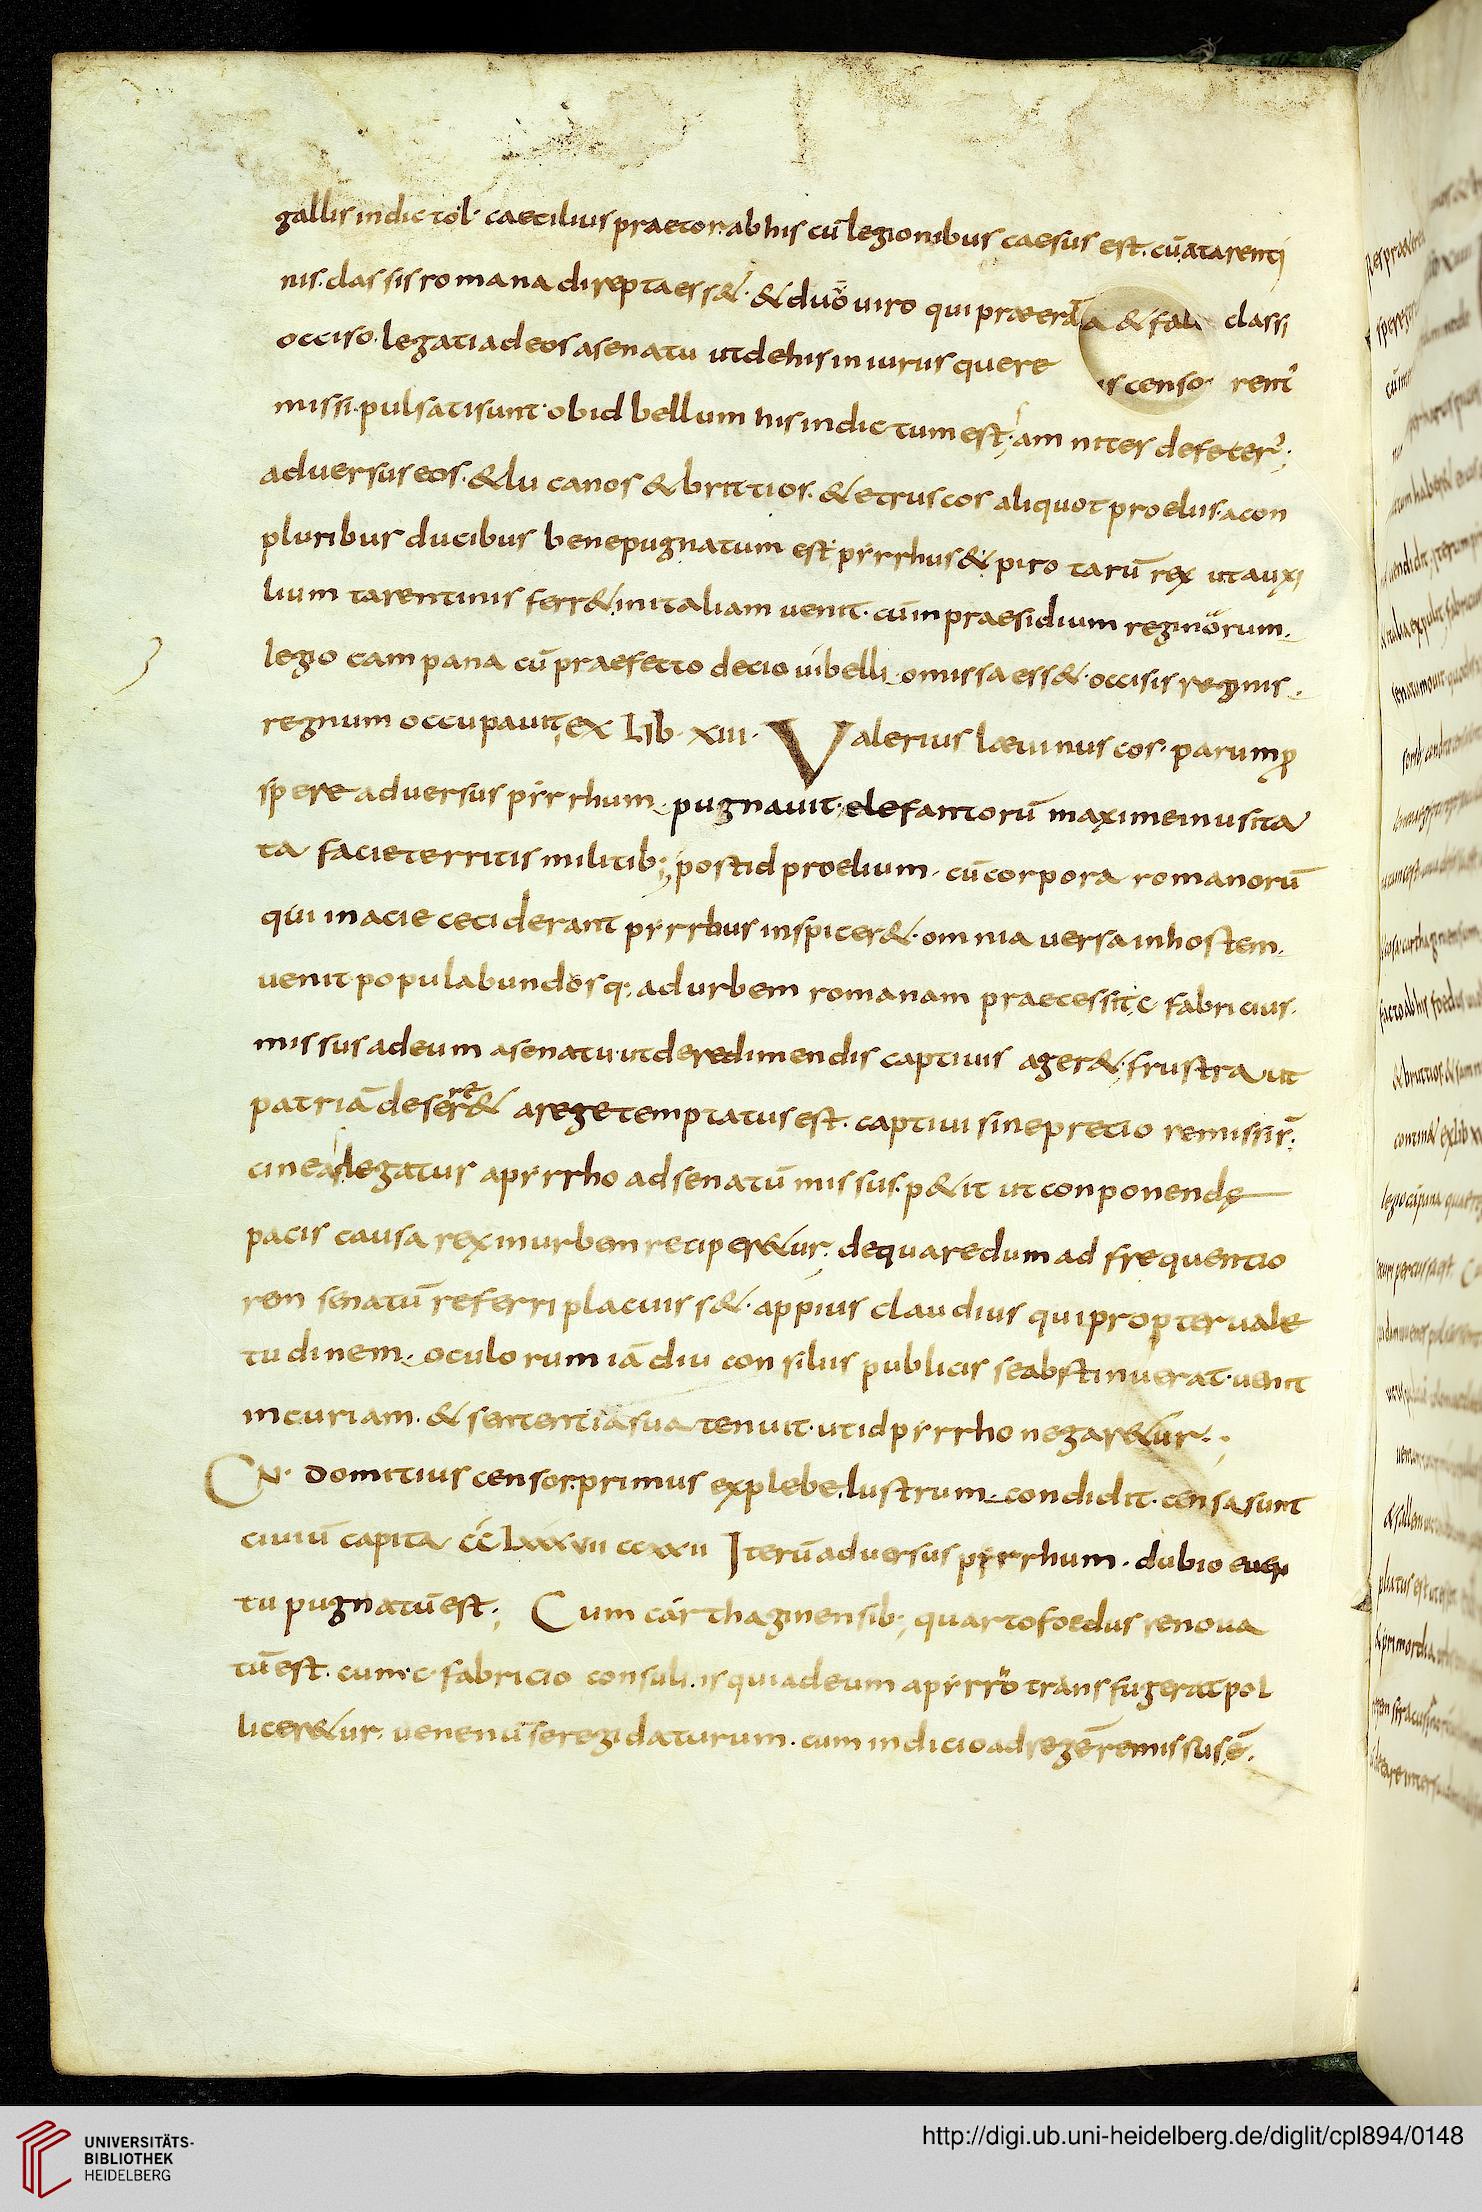 gallis indictol· caecilius praetor ab his cū legionibus caesus est. cūatarenti
nis. classis romana direpta ess&· & duoviro qui praeerat classi
occiso· legatiadeos asenatu ut dehis iniurus quere rent̄
missi· pulsatisunt· obid bellum his indictum est; samnites defecer̄;
adversus eos. & lucanos & brittios. & etruscos aliquot proeliis· acon
pluribus ducibus bene pugnatum est· pyrrhus & pirotarū rex ut auxi
lium tarentinis ferr& in italiam venit· cum praesidium reginorum.
legio campana cū praefecto decio vibelli omissa ess&· occisis reginis.
regnum occupavit; ex Lib· XIII· Valerius laevinus cos· parump
spere adversus pyrrhum pugnavit· elefantorū maxime inusita
ta facie territis militib; post id proelium· cū corpora romanorū
qui in acie ceciderant pyrrhus inspicer&· omnia versa in hostem
venit populabundosq; ad urbem romanam praecessit c fabricius.
missus ad eum a senatu· ut de redimendis captivis ager&· frustra ut
patriā deserer& a rege temptatus est· captivi sine pretio remissi sr̄;
cineas legatus a pyrrho ad senatū missus· p&it ut conponendę
pacis causa rex in urbem reciper&ur; de qua re dum ad frequentio
rem senatū referri placuiss&· appius claudius qui propter vale
tudinem oculorum iā diu consiliis publicis se abstinuerat· venit
in curiam· & sententia sua tenuit· ut id pyrrho negar&ur·;
CN· domitius censor· primus ex plebe lustrum condidit· censa sunt
civiū capita CCLXXXVII CCXXII Iterū adversus pyrrhum· dubio even
tu pugnatū est; Cum carthaginensib; quarto foedus renova
tū est. cum c· fabricio consuli. is qui ad eum a pyrro transfugerat pol
licer&ur· venenū se regi daturum. cum indicio ad regē remissus ē·
UNIVERSITÄTS-
BIBLIOTHEK
HEIDELBERG
http://digi.ub.uni-heidelberg.de/diglit/cpl894/0148